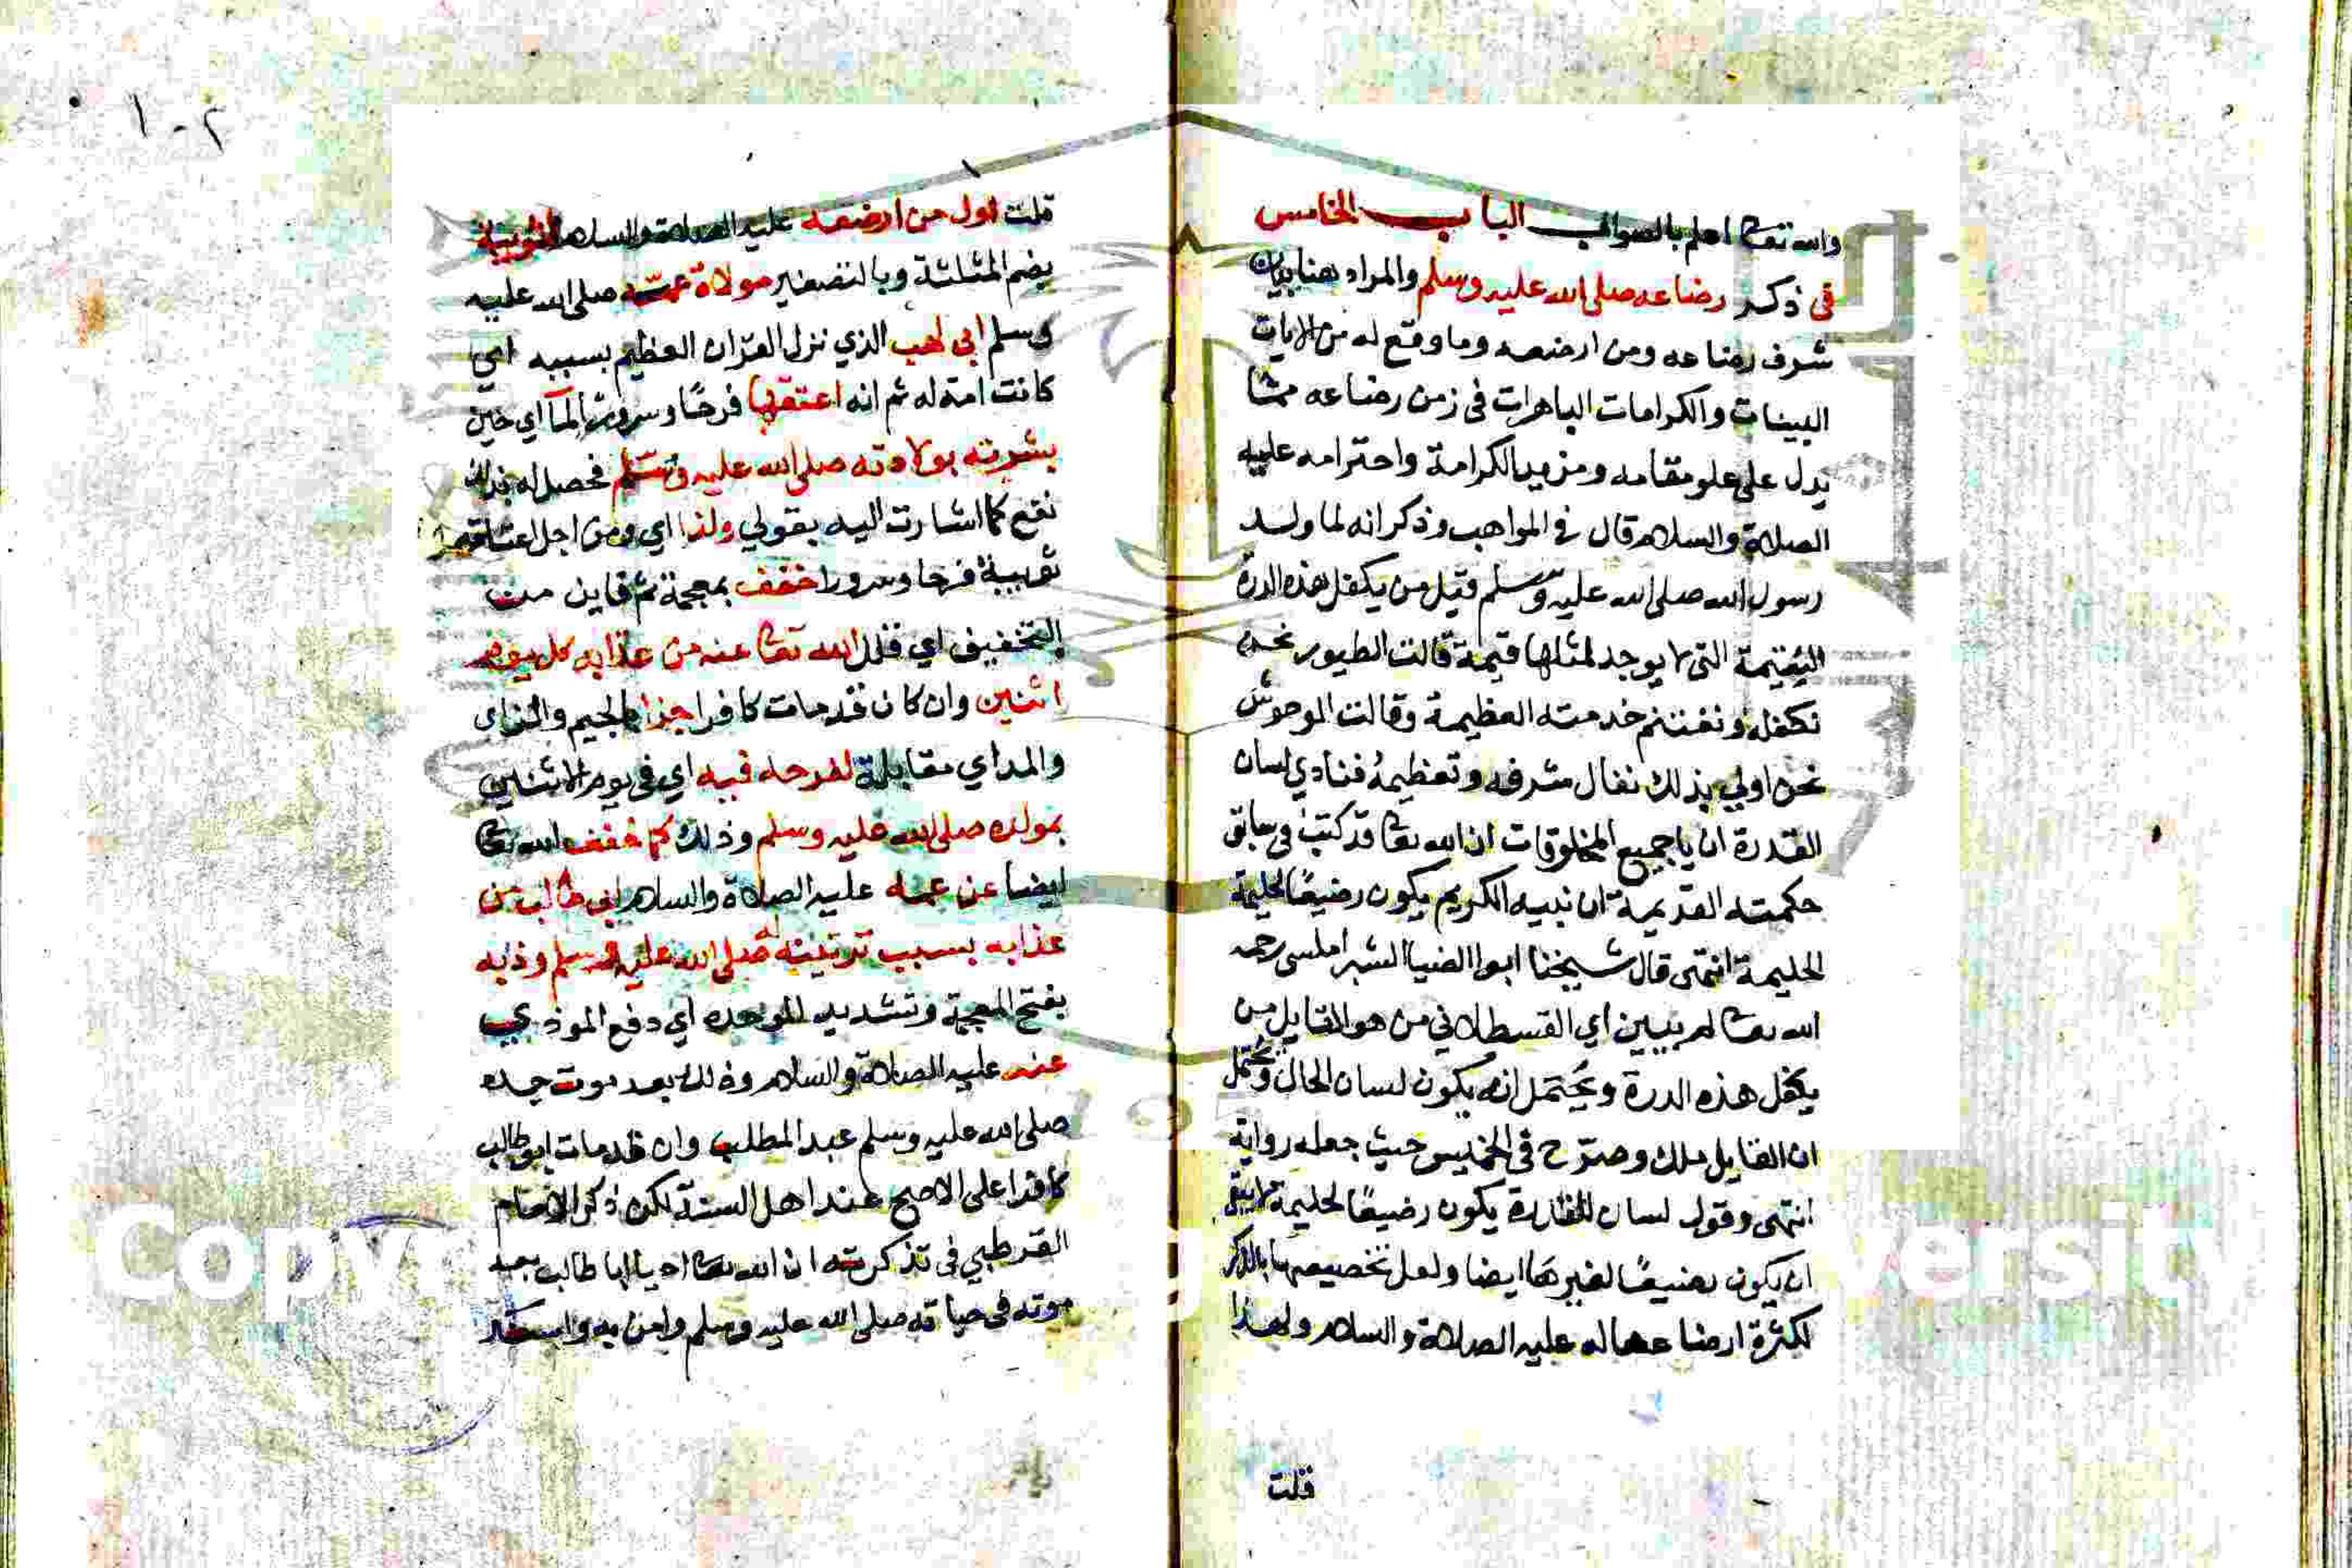 والله تعالى اعلم بالصواب الباب الخامس
في ذكر رضاعه صلى الله عليه وسلم والمراد هنا بيان
شرف رضاعه ومن ارضعه وما وقع له من الايات
البينات والكرامات الباهرات في زمن رضاعه مما
يدل على علو مقامه ومزيد الكرامة واحترامه عليه
الصلاة والسلام قال في المواهب وذكر انه لما ولد
رسول الله صلى الله عليه وسلم قيل من يكفل هذه الدرة
اليتيمة التي لا يوجد لمثلها قيمة قالت الطيور نحن
نكفله ونغتنم خدمته العظيمة وقالت الوحوش
نحن اولي بذلك ننال شرفه وتعظيمه فنادي لسان
القدرة ان يا جميع المخلوقات ان الله تعالى قد كتب في سابق
حكمته القديمة ان نبيه الكريم يكون رضيعًا لحليمة
الحليمة انتهى قال شيخنا ابوا الضيا الشبراملسي رحمه
الله تعالى لم يبين اي القسطلاني من هو القايل من
يكفل هذه الدرة ويحتمل انه يكون لسان الحال ويحتمل
ان القايل ملك وصرّح في الخميس حيث جعله رواية
انتهى وقول لسان القدرة يكون رضيعًا لحليمة لا ينفي
ان يكون رضيعًا لغيرها ايضا ولعل تخصيصها بالذكر
لكثرة ارضاعها له عليه الصلاة والسلام ولهذا
قلت
١٠٢
قلت اول من ارضعه عليه الصلاة والسلام ثويبة
بضم المثلثة وبالتصغير مولاة عمه صلى الله عليه
وسلم ابي لهب الذي نزل القران العظيم بسببه اي
كانت امة له ثم انه اعتقها فرحًا وسرورا لما اي حين
بشرته بولادته صلى الله عليه وسلم فحصل له بذلك
نفع كما اشارت اليه بقولي ولذا اي ومن اجل اعتاقه
ثويبة فرحا وسرورا خفف بمعجمة ثم فاين من
التخفيف اي قلل الله تعالى عنه من عذابه كل يوم
اثنين وان كان قد مات كافرا جزا بالجيم والزاي
والمد اي مقابلة لفرحه فيه اي في يوم الاثنين
بمولده صلى الله عليه وسلم وذلك كما خفف الله تعالى
ايضا عن عمه عليه الصلاة والسلام ابي طالب من
عذابه بسبب تربيته صلى الله عليه وسلم وذبه
بفتح المعجمة وتشديد الموحدة اي دفع الموذي
عنه عليه الصلاة والسلام وذلك بعد موت جده
صلى الله عليه وسلم عبد المطلب وان قد مات ابو طالب
كافرا على الاصح عند اهل السنة لكن ذكر الامام
القرطبي في تذكرته ان الله تعالى احيا ابا طالب بعد
موته في حياته صلى الله عليه وسلم وامن به
Copy
versity